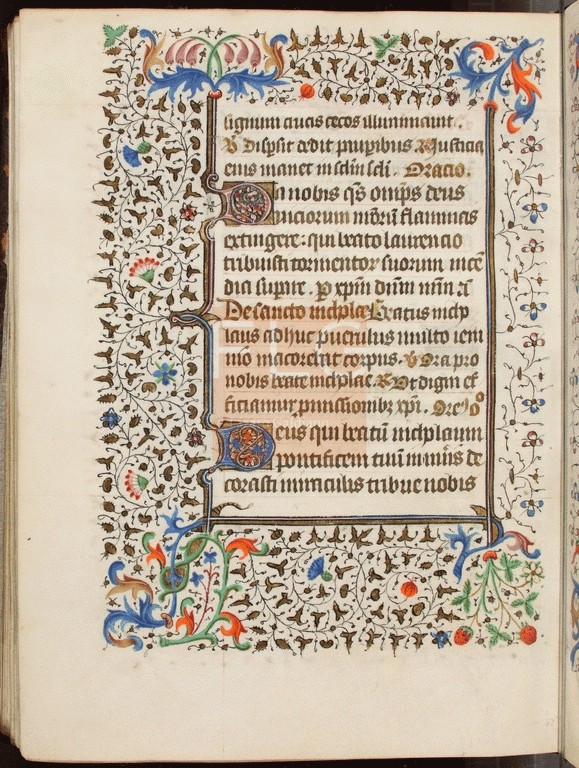 lignum crucis cecos illuminauit.
V Dispsit dedit pauperibus. R Justicia
eius manet in sclm scli. Oratio.
Da nobis qs omps deus
uiciorum nrorū flammas
extingere: qui beato laurencio
tribuisti tormentor suorum incē
dia supare. p xpm dnm nrm. &
De sancto nichplao Beatus nichp
laus adhuc puerulus multo ieiu
nio macerebat corpus. V Ora pro
nobis beate nichplae. R Vt digni ef
ficiamur pmissionibz xpi. Oreo
Deus qui beatū nichplaum
pontificem tuū innūis de
corasti miraculis tribue nobis